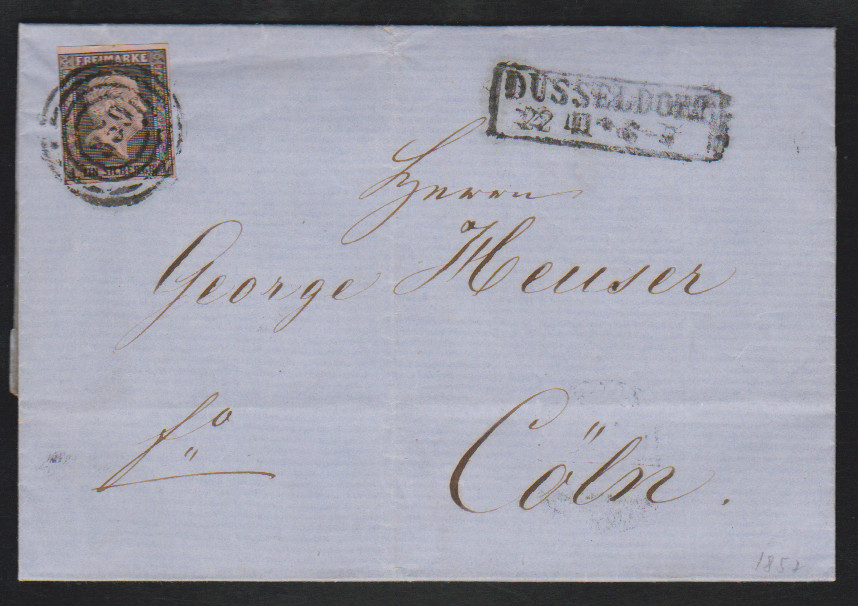 FREIMARKE
EIN SILBERGR.
DUSSELDORF
22 III * 6-
Herrn
George Heuser
fo
Cöln.
185